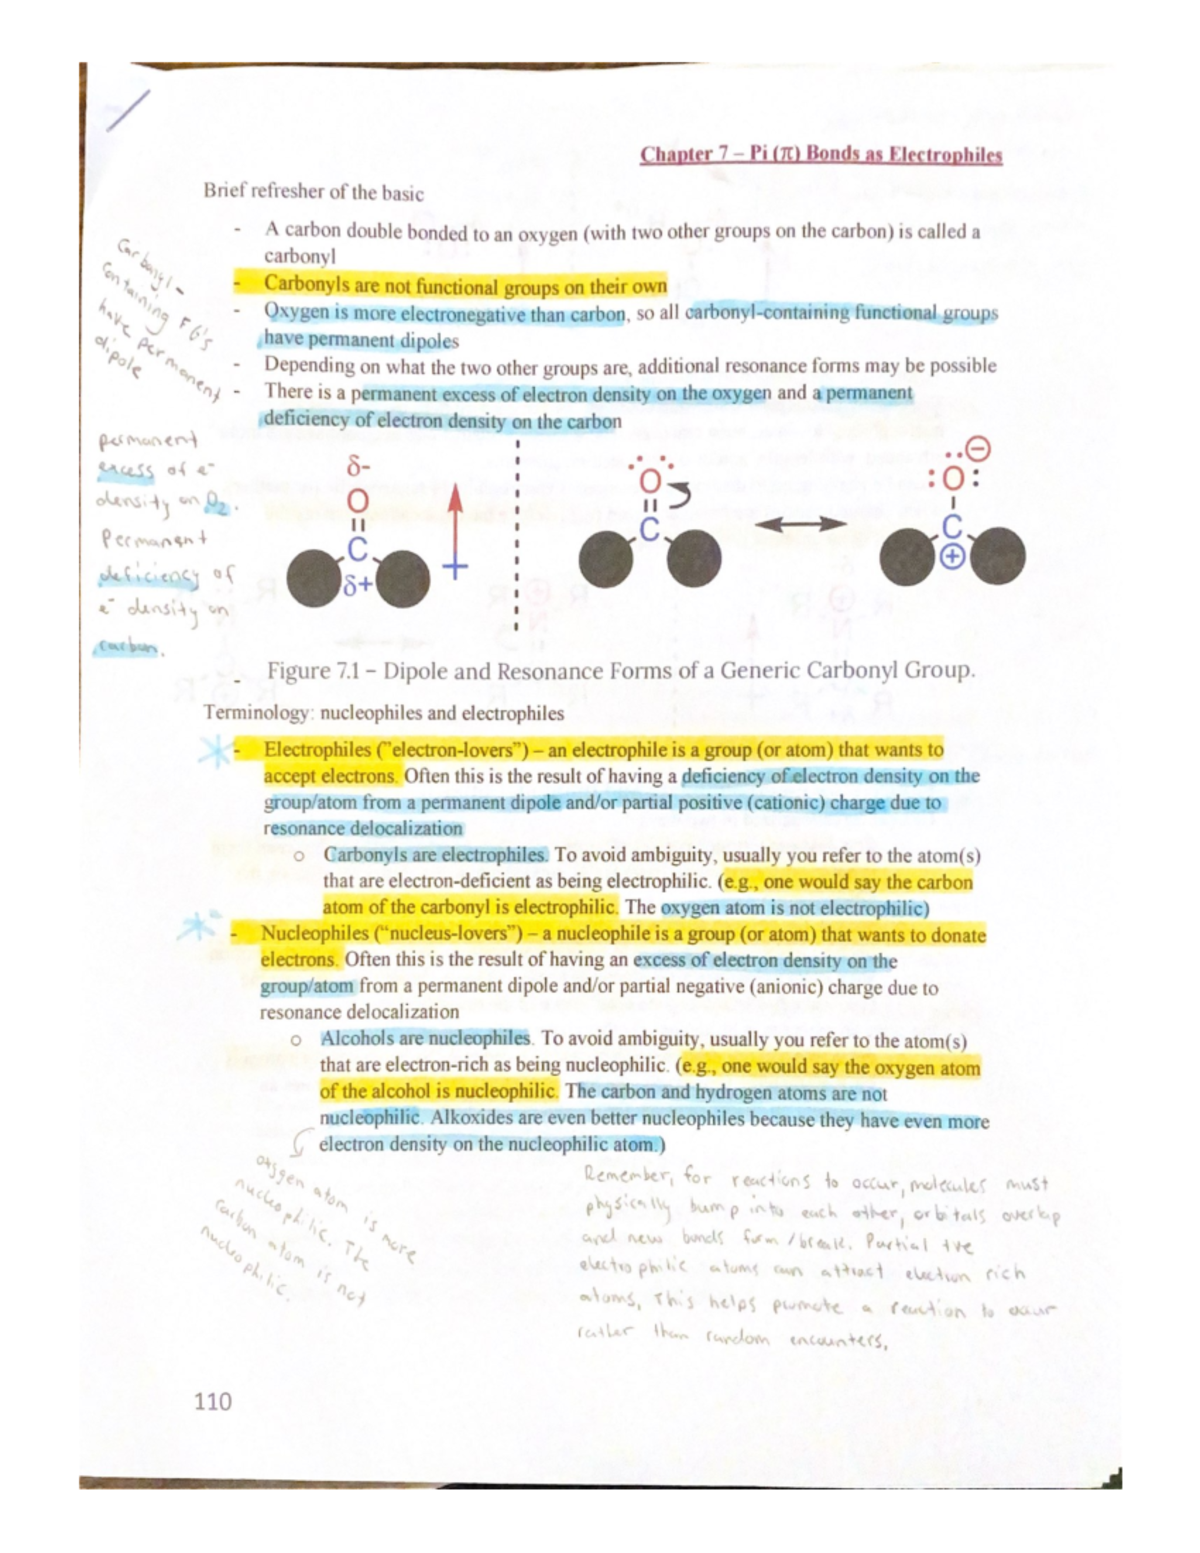 Chapter 7 – Pi (π) Bonds as Electrophiles
Brief refresher of the basic
- A carbon double bonded to an oxygen (with two other groups on the carbon) is called a
carbonyl
- Carbonyls are not functional groups on their own
- Oxygen is more electronegative than carbon, so all carbonyl-containing functional groups
have permanent dipoles
- Depending on what the two other groups are, additional resonance forms may be possible
- There is a permanent excess of electron density on the oxygen and a permanent
deficiency of electron density on the carbon
Carbonyl-
containing FG's
have permanent
dipole
permanent
excess of e⁻
density on O₂.
Permanent
deficiency of
e⁻ density on
carbon.
δ-
O
C
δ+
O
C
O
C
- Figure 7.1 – Dipole and Resonance Forms of a Generic Carbonyl Group.
Terminology: nucleophiles and electrophiles
- Electrophiles ("electron-lovers") – an electrophile is a group (or atom) that wants to
accept electrons. Often this is the result of having a deficiency of electron density on the
group/atom from a permanent dipole and/or partial positive (cationic) charge due to
resonance delocalization
o Carbonyls are electrophiles. To avoid ambiguity, usually you refer to the atom(s)
that are electron-deficient as being electrophilic. (e.g., one would say the carbon
atom of the carbonyl is electrophilic. The oxygen atom is not electrophilic)
- Nucleophiles ("nucleus-lovers") – a nucleophile is a group (or atom) that wants to donate
electrons. Often this is the result of having an excess of electron density on the
group/atom from a permanent dipole and/or partial negative (anionic) charge due to
resonance delocalization
o Alcohols are nucleophiles. To avoid ambiguity, usually you refer to the atom(s)
that are electron-rich as being nucleophilic. (e.g., one would say the oxygen atom
of the alcohol is nucleophilic. The carbon and hydrogen atoms are not
nucleophilic. Alkoxides are even better nucleophiles because they have even more
electron density on the nucleophilic atom.)
oxygen atom is more
nucleophilic. The
carbon atom is not
nucleophilic.
Remember, for reactions to occur, molecules must
physically bump into each other, orbitals overlap
and new bonds form/break. Partial +ve
electrophilic atoms can attract electron rich
atoms, This helps promote a reaction to occur
rather than random encounters,
110